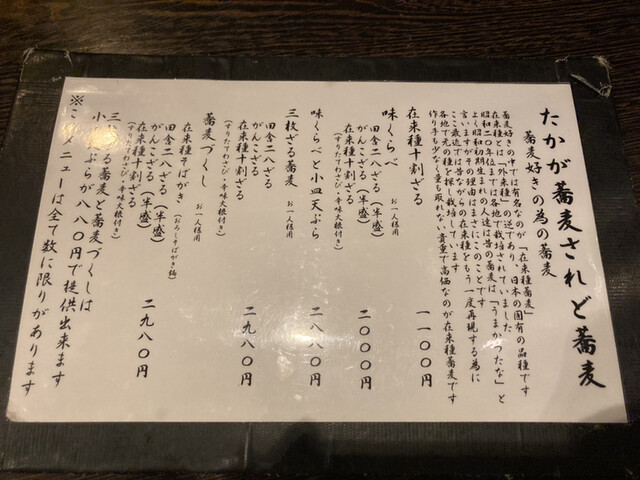 たかが蕎麦されど蕎麦
蕎麦好きの為の蕎麦
蕎麦好きの中では有名なのが「在来種蕎麦」
在来種とは「外来種」の逆であり、日本の固有の品種です
昭和二〇年位までは各地で栽培されていました
よく昭和初期生まれの人達は昔の蕎麦は「うまかったな」と
言いますがその理由はまさにこのことです
ここ最近では昔ながらの在来種をもう一度再現する為に
各地で元の種を探し栽培しています
作り手も少なく量も取れない貴重で高価なのが在来種蕎麦です
在来種十割ざる 一一〇〇円
味くらべ お一人様用
田舎二八ざる(半盛)
がんこざる(半盛)
在来種十割ざる 二〇〇〇円
(すりたてわさび・辛味大根付き)
味くらべと小皿天ぷら 二八八〇円
三枚ざる蕎麦 お一人様用
田舎二八ざる
がんこざる
在来種十割ざる 二九八〇円
(すりたてわさび・辛味大根付き)
蕎麦づくし お一人様用
在来種そばがき(おろしそばがき編)
田舎二八ざる(半盛)
がんこざる(半盛)
在来種十割ざる(半盛) 二九八〇円
(すりたてわさび・辛味大根付き)
三枚ざる蕎麦と蕎麦づくしは
小皿天ぷらが八八〇円で提供出来ます
※このメニューは全て数に限りがあります